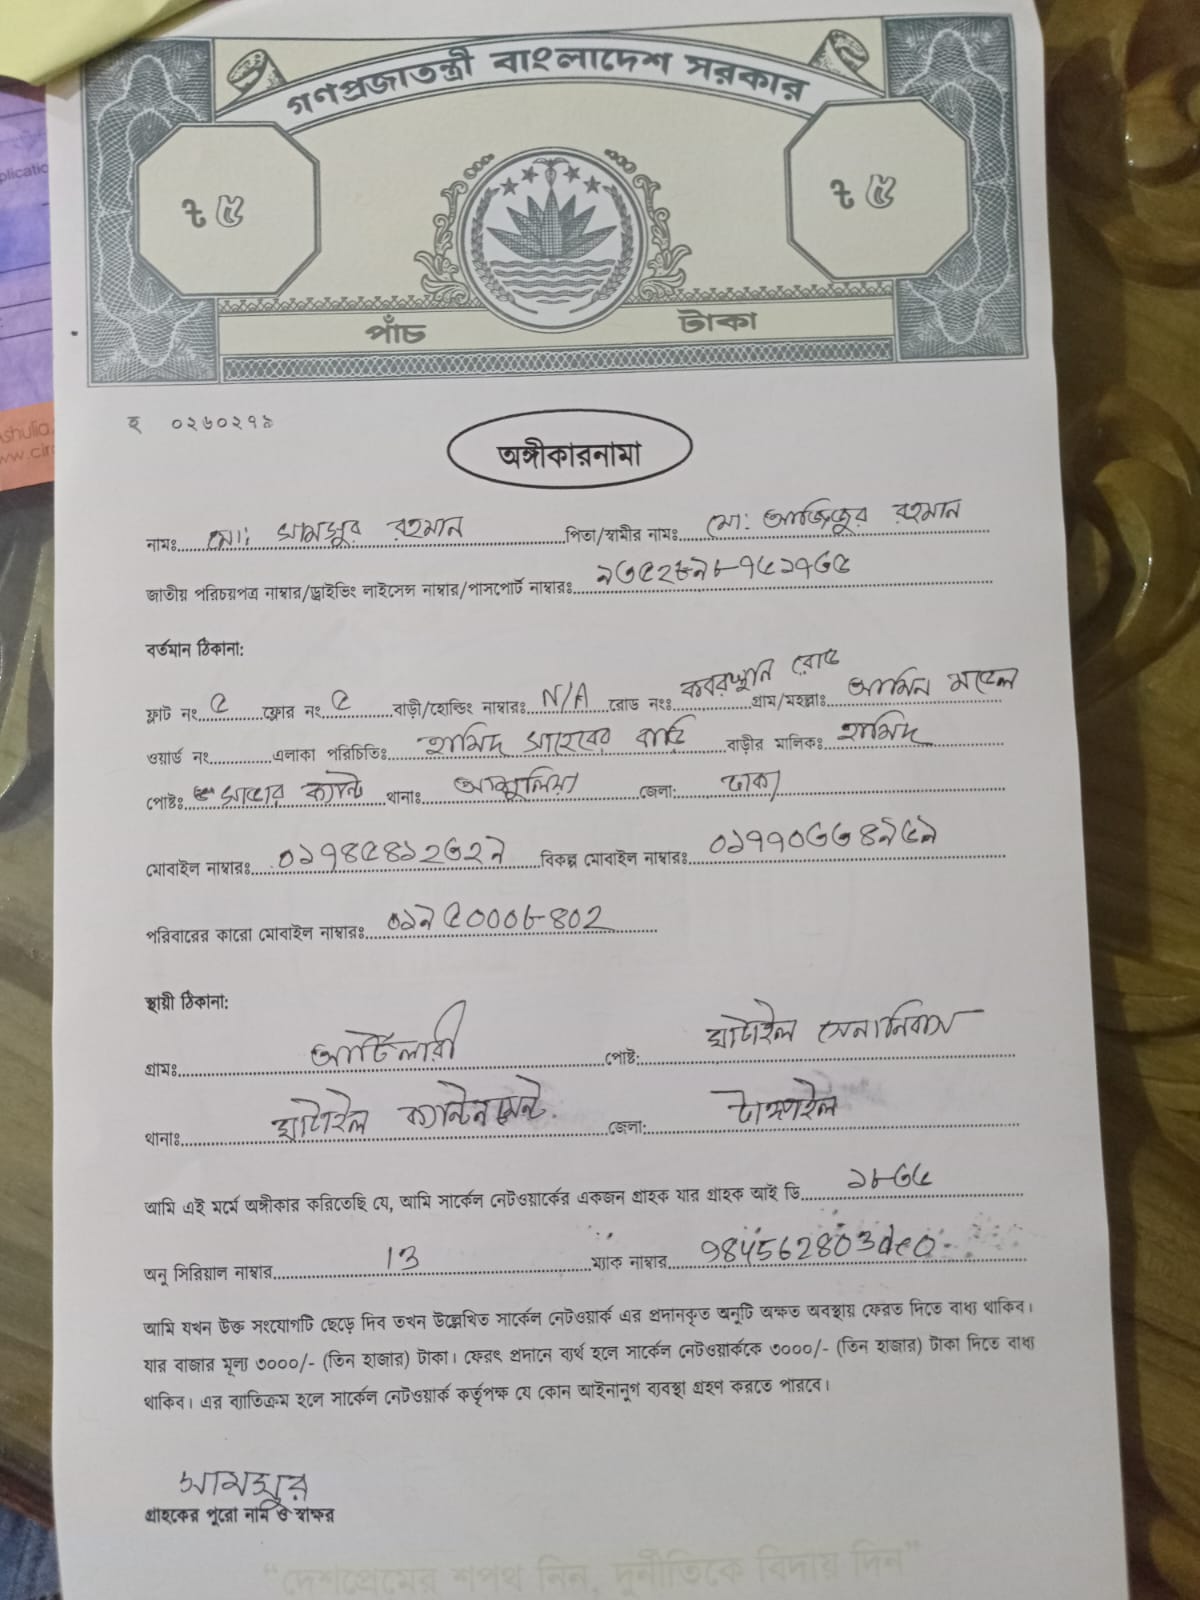 গণপ্রজাতন্ত্রী বাংলাদেশ সরকার
৳ ৫ ৳ ৫
পাঁচ টাকা
হ ০২৬০২৭৯
অঙ্গীকারনামা
নামঃ মো: সামসুর রহমান পিতা/স্বামীর নামঃ মো: আজিজুর রহমান
জাতীয় পরিচয়পত্র নাম্বার/ড্রাইভিং লাইসেন্স নাম্বার/পাসপোর্ট নাম্বারঃ
বর্তমান ঠিকানা:
ফ্লাট নং ৫ ফ্লোর নং ৫ বাড়ী/হোল্ডিং নাম্বারঃ N/A রোড নংঃ কবরস্থান রোড গ্রাম/মহল্লাঃ আমিন মডেল
ওয়ার্ড নং এলাকা পরিচিতিঃ হামিদ সাহেবের বাড়ি বাড়ীর মালিকঃ হামিদ
পোষ্টঃ সাভার ক্যান্ট থানাঃ আশুলিয়া জেলা: ঢাকা
মোবাইল নাম্বারঃ ০১৭৪৫৪১২৩২৯ বিকল্প মোবাইল নাম্বারঃ ০১৭৭০৩৩৪৯৫৯
পরিবারের কারো মোবাইল নাম্বারঃ ০১৯৫০০০৮৪০২
স্থায়ী ঠিকানা:
গ্রামঃ আর্টিলারী পোষ্ট: ঘাটাইল সেনানিবাস
থানাঃ ঘাটাইল ক্যান্টনমেন্ট. জেলা: টাঙ্গাইল
আমি এই মর্মে অঙ্গীকার করিতেছি যে, আমি সার্কেল নেটওয়ার্কের একজন গ্রাহক যার গ্রাহক আই ডি ১৮৩৫
অনু সিরিয়াল নাম্বার 13 ম্যাক নাম্বার 984562803de0
আমি যখন উক্ত সংযোগটি ছেড়ে দিব তখন উল্লেখিত সার্কেল নেটওয়ার্ক এর প্রদানকৃত অনুটি অক্ষত অবস্থায় ফেরত দিতে বাধ্য থাকিব।
যার বাজার মূল্য ৩০০০/- (তিন হাজার) টাকা। ফেরৎ প্রদানে ব্যর্থ হলে সার্কেল নেটওয়ার্ককে ৩০০০/- (তিন হাজার) টাকা দিতে বাধ্য
থাকিব। এর ব্যাতিক্রম হলে সার্কেল নেটওয়ার্ক কর্তৃপক্ষ যে কোন আইনানুগ ব্যবস্থা গ্রহণ করতে পারবে।
সামসুর
গ্রাহকের পুরো নাম ও স্বাক্ষর
“দেশপ্রেমের শপথ নিন, দুর্নীতিকে বিদায় দিন”